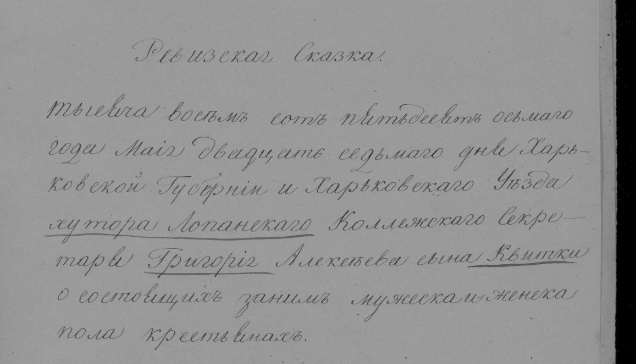 Ревизская Сказка.
тысеча восемь сотъ пятьдесятъ осьмаго
года Маія двадцать седьмаго дня Харь-
ковской Губерніи и Харьковскаго Уѣзда
хутора Лопанскаго Коллежскаго Секре-
таря Григорія Алексѣева сына Квитки
о состоящихъ занимъ мужеска и женска
пола крестьянахъ.